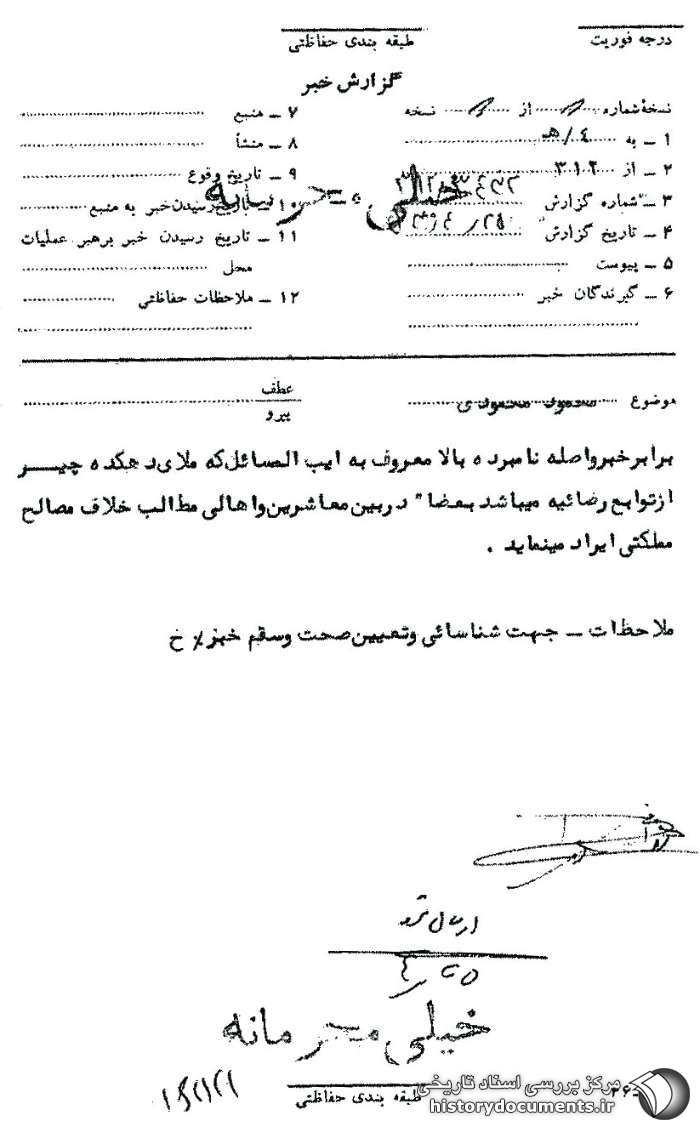 درجه فوریت
طبقه بندی حفاظتی
گزارش خبر
نسخهٔ شماره از نسخه
۱ ـ به ۴/هـ
۲ ـ از ۳۱۲
۳ ـ شماره گزارش
۴ ـ تاریخ گزارش
۵ ـ پیوست
۶ ـ گیرندگان خبر
۷ ـ منبع
۸ ـ منشأ
۹ ـ تاریخ وقوع
۱۰ ـ تاریخ رسیدن خبر به منبع
۱۱ ـ تاریخ رسیدن خبر برهبر عملیات
محل
۱۲ ـ ملاحظات حفاظتی
خیلی محرمانه
موضوع محمود محمودی
عطف
پیرو
برابر خبر واصله نامبرده بالا معروف به ایب المسائل که ملای دهکده چیر
از توابع رضائیه میباشد بعضا" در بین معاشرین واهالی مطالب خلاف مصالح
مملکتی ایراد مینماید .
ملاحظات ـ جهت شناسائی وتعیین صحت وسقم خبز٪ خ
ارسال شود
خیلی محرمانه
طبقه بندی حفاظتی
مرکز بررسی اسناد تاریخی
historydocuments.ir